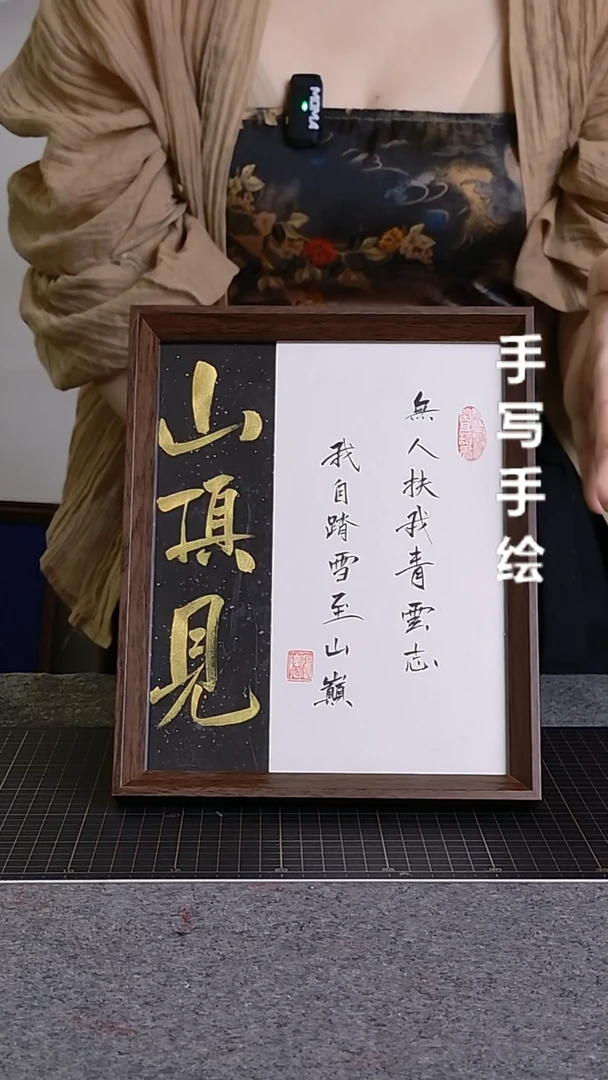 無人扶我青雲志
我自踏雪至山巔
山頂見
手写手绘
MOMA